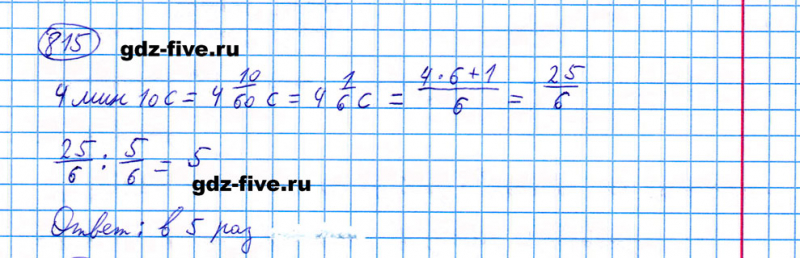 815
gdz-five.ru
4 мин 10 с = 4 10/60 с = 4 1/6 с = (4·6+1)/6 = 25/6
25/6 : 5/6 = 5
gdz-five.ru
Ответ: в 5 раз